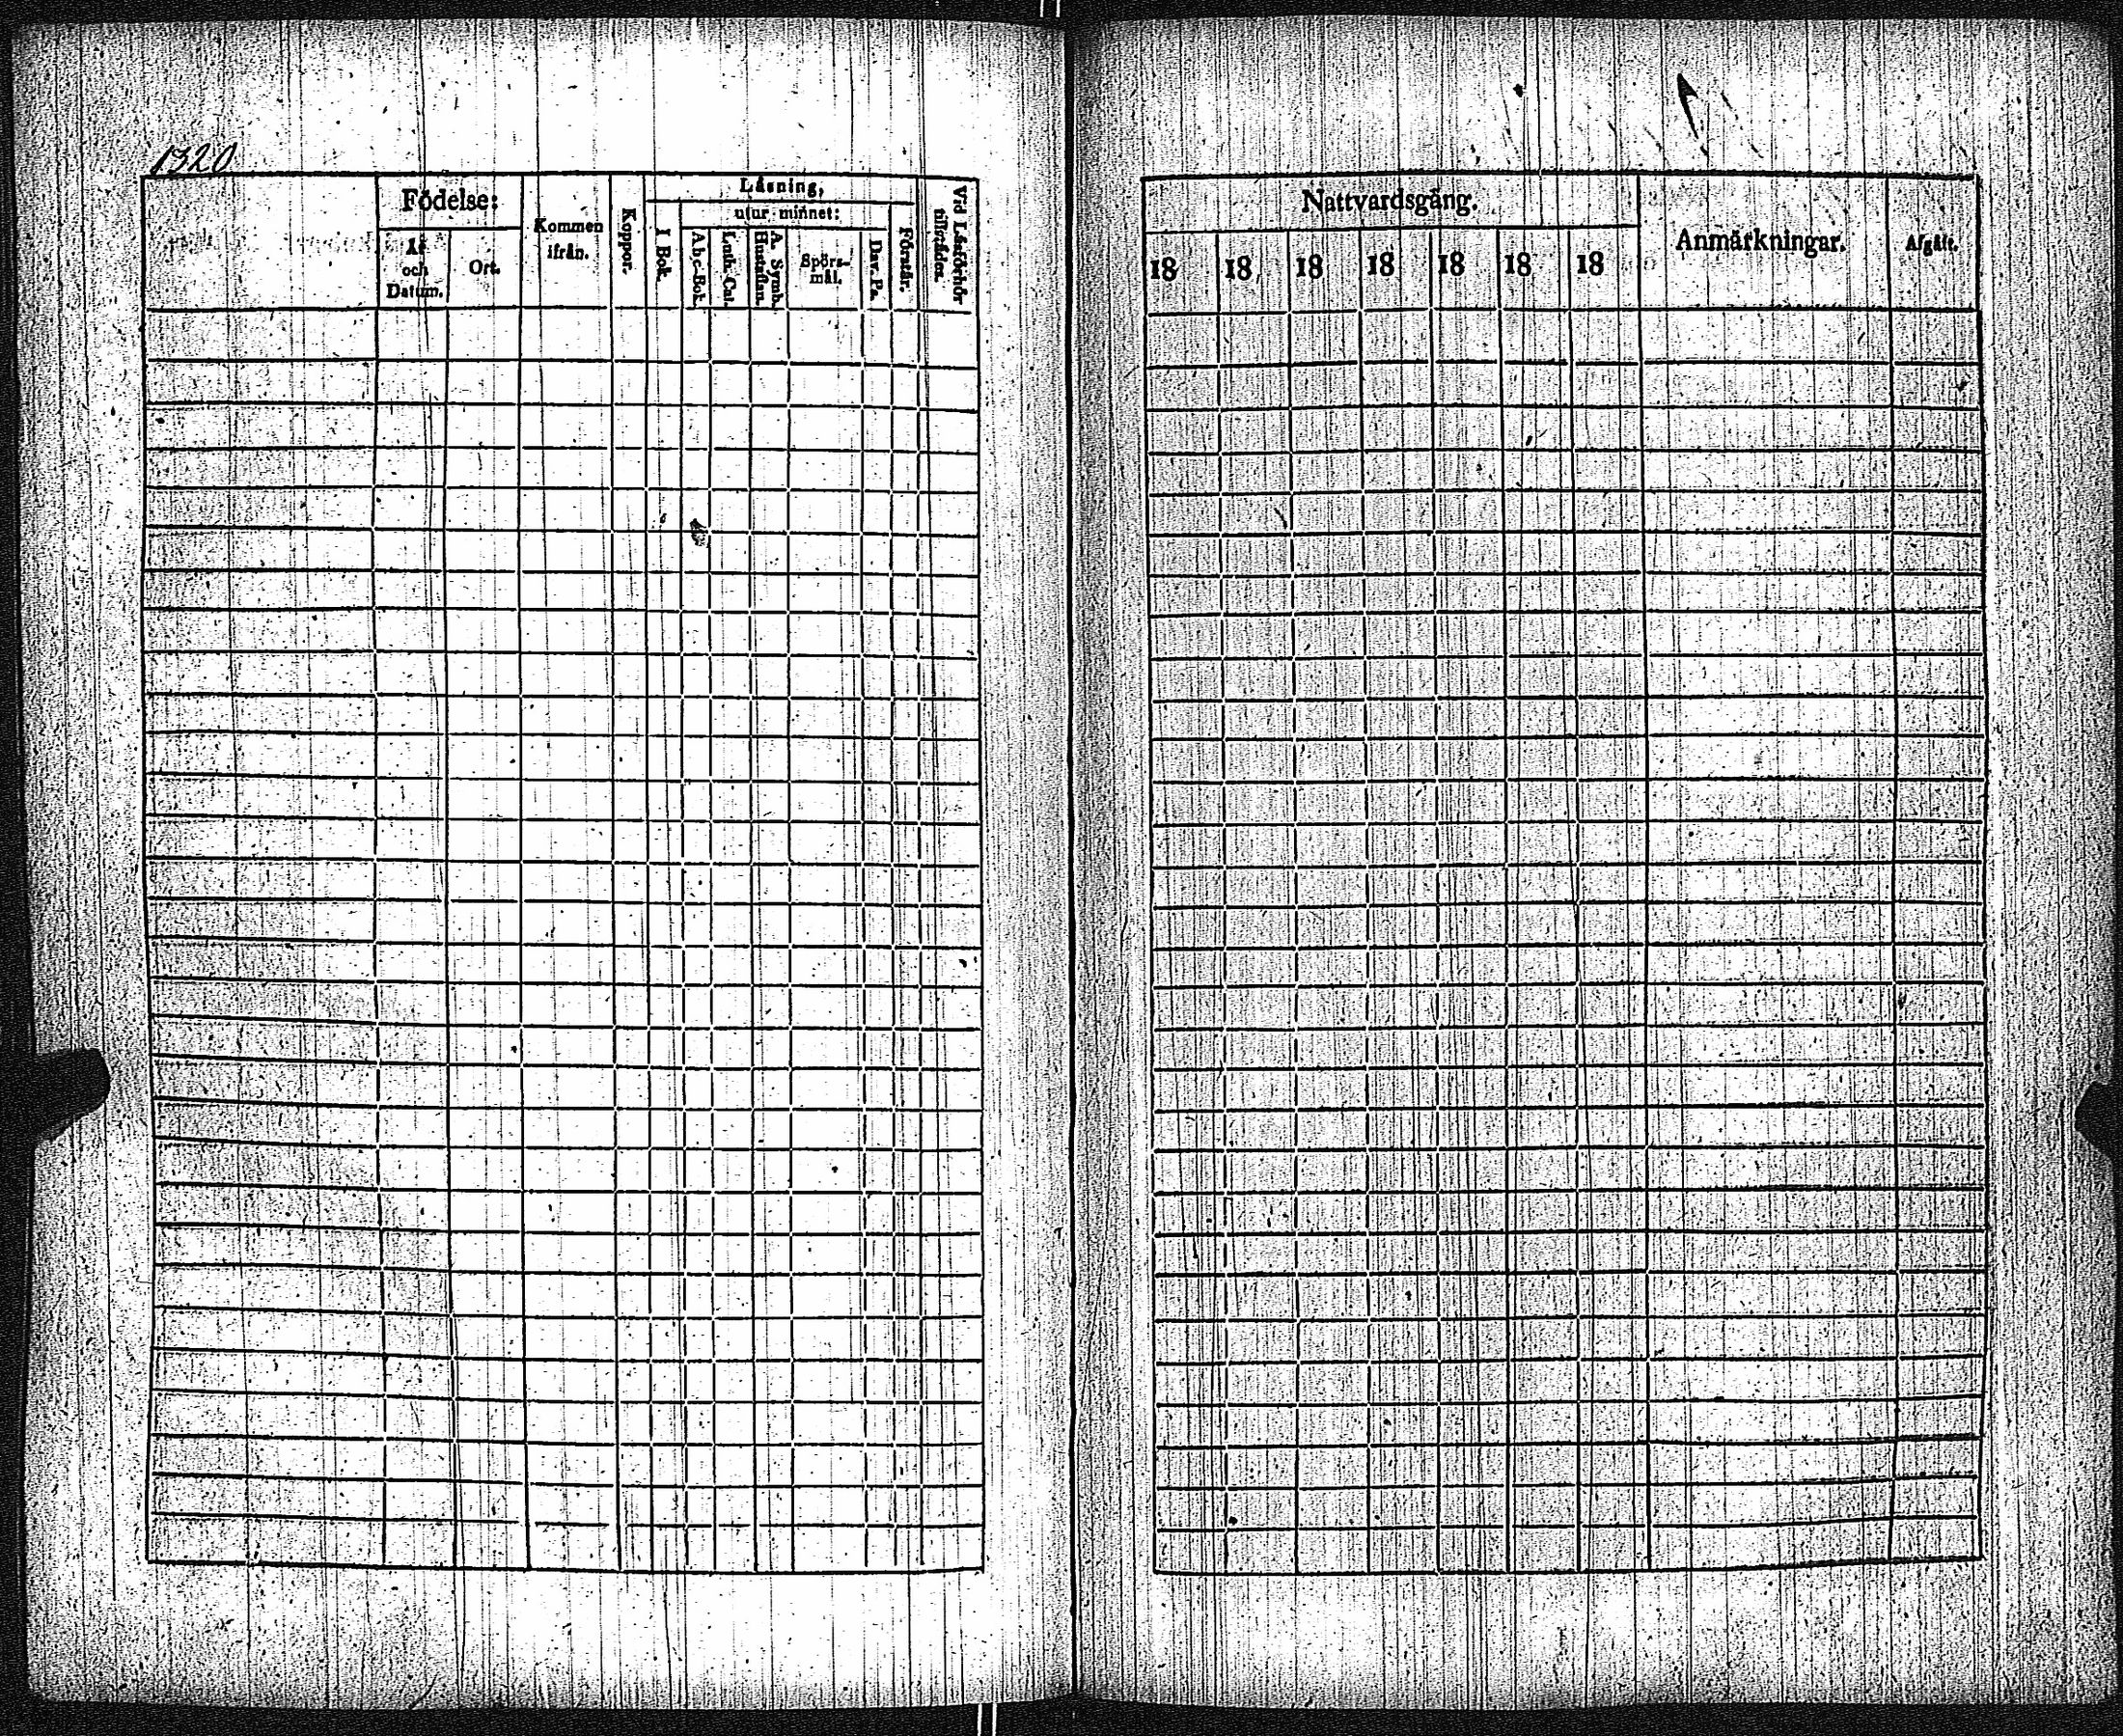 1320
Födelse:
År
och
Datum.
Ort.
Kommen
ifrån.
Koppor.
Läsning,
utur minnet:
I Bok.
Abc-Bok.
Luth. Cat.
A. Symb.
Hustaflan.
Spörs-
mål.
Dav. Ps.
Förstår.
Vid Läsförhör
tillstädes.
Nattvardsgång.
18 18 18 18 18 18 18
Anmärkningar.
Afgått.